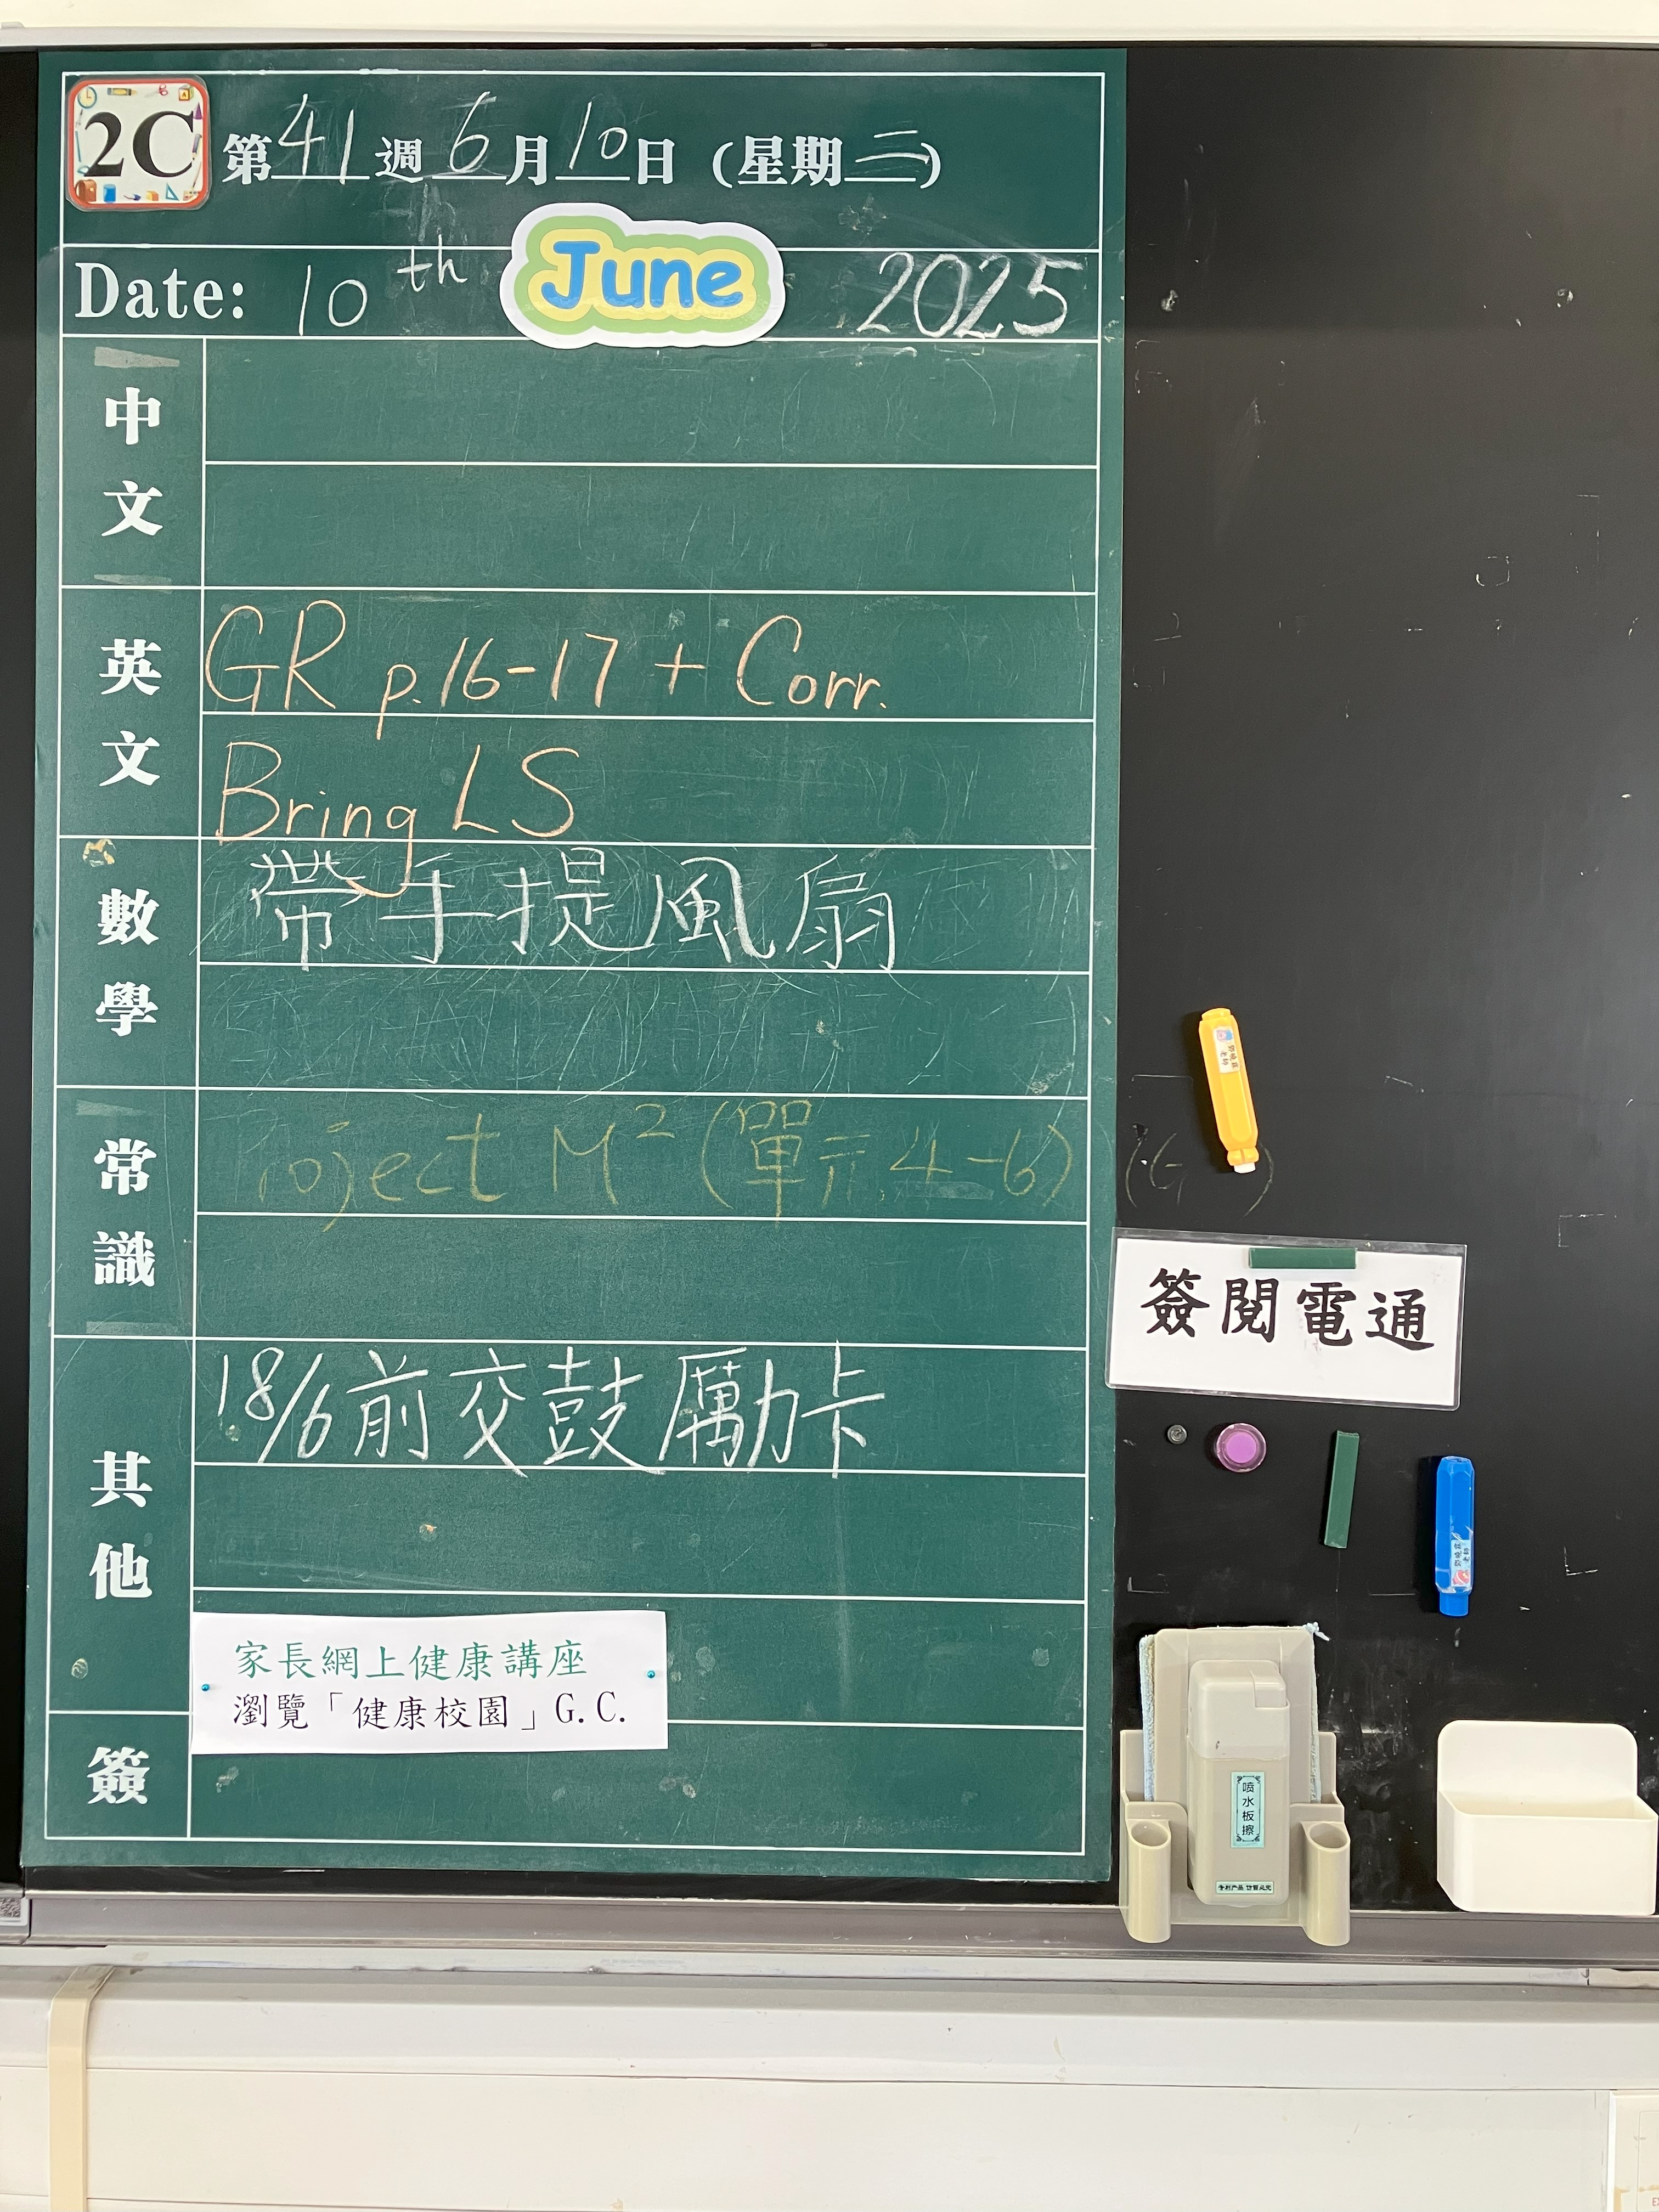 2C
第41週6月10日(星期二)
Date: 10th June 2025
中文
英文
GR p.16-17 + Corr.
Bring LS
數學
帶手提風扇
常識
roject M² (單元4-6)
(G )
其他
18/6前交鼓勵卡
家長網上健康講座
瀏覽「健康校園」G.C.
簽
簽閱電通
喷水板擦